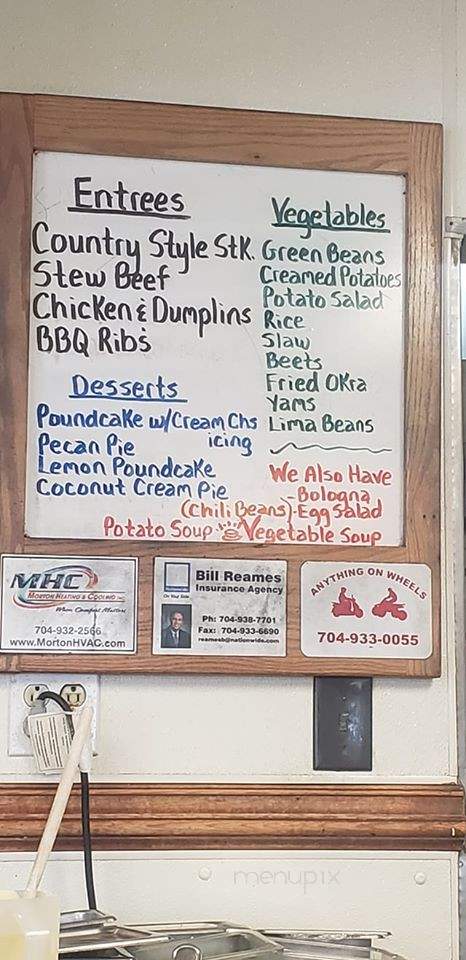 Entrees
Country Style Stk.
Stew Beef
Chicken & Dumplins
BBQ Ribs
Desserts
Poundcake w/Cream Chs
icing
Pecan Pie
Lemon Poundcake
Coconut Cream Pie
Vegetables
Green Beans
Creamed Potatoes
Potato Salad
Rice
Slaw
Beets
Fried Okra
Yams
Lima Beans
We Also Have
-Bologna
(Chili Beans)-Egg Salad
Potato Soup Vegetable Soup
MHC
MORTON HEATING & COOLING INC
When Comfort Matters
704-932-2566
www.MortonHVAC.com
Bill Reames
Insurance Agency
On Your Side
Ph: 704-938-7701
Fax: 704-933-6690
reamesb@nationwide.com
ANYTHING ON WHEELS
704-933-0055
menupix